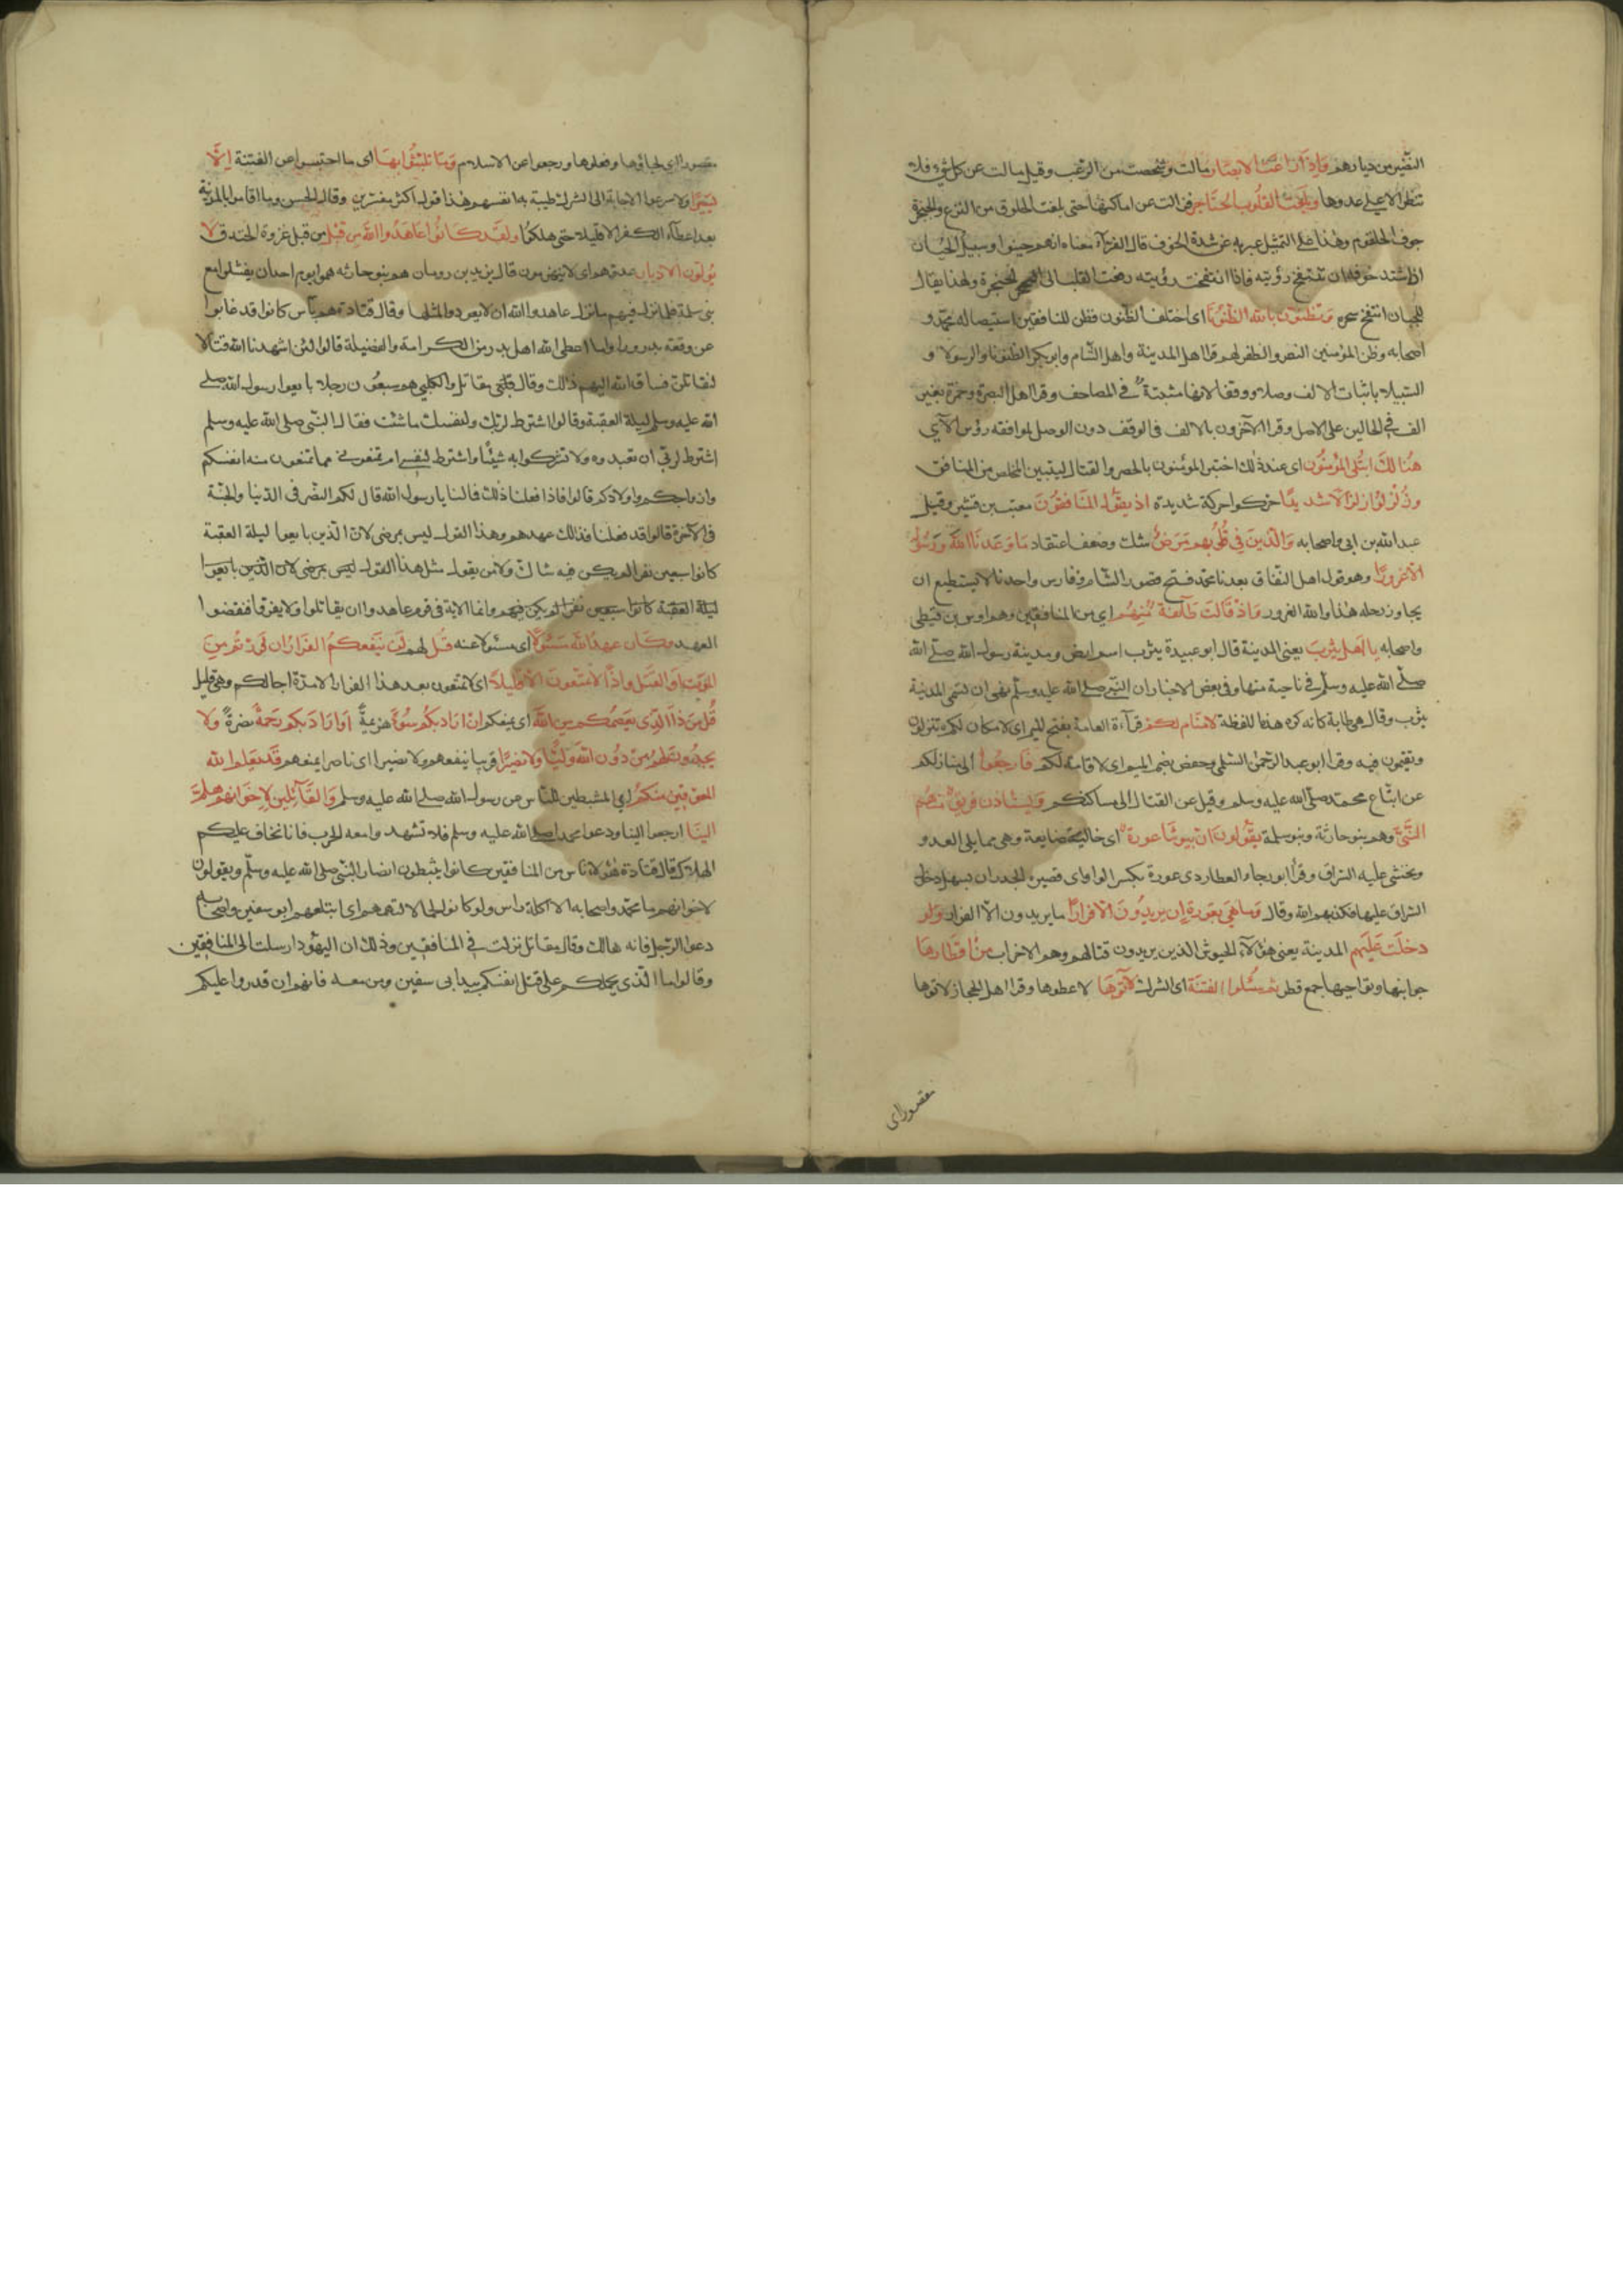 النضير من ديارهم وَاِذْ زاغت الابصار مالت وشخصت من الرعب وقيل مالت عن كل شيء فلم
تنظر الا الى عدوها وبلغت القلوب الحناجر فزالت عن اماكنها حتى بلغت الحلوق من الفزع والحنجرة
جوف الحلقوم وهذا على التمثيل عبر به عن شدة الخوف قال الفرآء معناه انهم جبنوا وسبيل الجبان
اذا اشتد خوفه ان تنتفخ رؤيته فاذا انتفخت رؤيته رفعت القلب الى الحنجرة ولهذا يقال
للجبان انتفخ سحره وتظنون بالله الظنونا اى اختلف الظنون فظن المنافقين استيصال محمد و
اصحابه وظن المؤمنين النصر والظفر لهم قرا اهل المدينة واهل الشام وابو بكر الظنونا والرسولا و
السبيلا باثبات الالف وصلا ووقفا لانها مثبتة في المصاحف وقرا اهل البصرة وحمزة بغير
الف في الحالين على الاصل وقرا الآخرون بالالف في الوقف دون الوصل لموافقة رؤس الآي
هُنالك ابتلى المؤمنون اى عند ذلك اختبر المؤمنون بالحصر والقتال ليتبين المخلص من المنافق
وزلزلوا زلزالا شديدًا حركوا حركة شديدة اذ يقول المنافقون معتب بن قشير وقيل
عبد الله بن ابي واصحابه والذين في قلوبهم مرض شك وضعف اعتقاد ما وعدنا الله ورسوله
الا غرورًا وهو قول اهل النفاق يعدنا محمد فتح قصور الشام وفارس واحدنا لا يستطيع ان
يجاوز رحله هذا والله الغرور واذ قالت طآئفة منهم اي من المنافقين وهم اوس بن قيظي
واصحابه يا اهل يثرب يعنى المدينة قال ابو عبيدة يثرب اسم ارض ومدينة رسول الله صلى الله
صلّى الله عليه وسلّم في ناحية منها وفى بعض الاخبار ان النبي صلى الله عليه وسلّم نهى ان تسمى المدينة
يثرب وقال هى طابة كانه كره هذه اللفظة لا مقام لكم قرآءة العامة بفتح الميم اى لا مكان لكم تنزلون
وتقيمون فيه وقرا ابو عبد الرحمن السلمي وحفص بضم الميم اى لا اقامة لكم فارجعوا الى منازلكم
عن اتباع محمد صلّى الله عليه وسلم وقيل عن القتال الى مساكنكم ويستاذن فريق منهم
النّبيّ وهم بنو حارثة وبنو سلمة يقولون ان بيوتنا عورة اى خالية ضايعة وهى مما يلى العدو
ويخشى عليه السراق وقرا ابو رجاء العطاردى عورة بكسر الواو اى قصيرة الجدران يسهل دخول
السراق عليها فكذبهم الله وقال وما هي بعورة ان يريدون الا فرارًا ما يريدون الا الفرار ولو
دخلت عليهم المدينة يعنى هؤلآء الجيوش الذين يريدون قتالهم وهم الاحزاب من اقطارها
جوانبها ونواحيها جمع قطر ثم سُئلوا الفتنة اى الشرك لآتوها لاعطوها وقرا اهل الحجاز لاتوها
مقصورا اى
مقصورا اى لجاؤها وفعلوها ورجعوا عن الاسلام وما تلبّثوا بها اى ما احتبسوا عن الفتنة اِلَّا
يسيرًا ولاسرعوا الاجابة الى الشرك طيبة به انفسهم هذا قول اكثر المفسرين وقال الحسن وما اقاموا بالمدينة
بعد اعطآء الكفر الا قليلا حتى هلكوا ولقد كانوا عاهدوا الله من قبل من قبل غزوة الخندق لا
يُولّون الادبار عدوهم اى لا ينهزمون قال يزيد بن رومان هم بنو حارثه هموا يوم احد ان يفشلوا مع
بنى سلمة فلما نزل فيهم ما نزل عاهدوا الله ان لا يعودوا لمثلها وقال قتادة هم ناس كانوا قد غابوا
عن وقعة بدر وراوا ما اعطى الله اهل بدر من الكرامة والفضيلة قالوا لئن اشهدنا الله قتالا
لنقاتلن فساق الله اليهم ذلك وقال مقاتل والكلبي هم سبعون رجلا بايعوا رسول الله صلى
الله عليه وسلم ليلة العقبة وقالوا اشترط لربك ولنفسك ما شئت فقال النّبي صلى الله عليه وسلم
اشترط لربي ان تعبدوه ولا تشركوا به شيئًا واشترط لنفسى ان تمنعونى مما تمنعون منه انفسكم
وازواجكم واولادكم قالوا فاذا فعلنا ذلك فما لنا يا رسول الله قال لكم النصر فى الدنيا والجنّة
فى الآخرة قالوا قد فعلنا فذلك عهدهم وهذا القول ليس بمرضى لان الذين بايعوا ليلة العقبة
كانوا سبعين نفرا لم يكن فيه شاك ولا من يقول مثل هذا القول ليس بمرضى لان الذين بايعوا
ليلة العقبة كانوا سبعين نفرا لم يكن فيهم وانما الاية فى قوم عاهدوا ان يقاتلوا ولا يفروا فنقضوا
العهد وكان عهد الله مسئولا اى مسئولا عنه قل لهم لن ينفعكم الفرار ان فررتم من
الموت او القتل واذًا لا تمتعون الا قليلا اى لا تمتعون بعد هذا الفرار الا مدة اجالكم وهى قليل
قُل من ذا الذى يعصمكم من الله اى يمنعكم ان اراد بكم سوءًا هزيمةً او اراد بكم رحمةً نصرةً ولا
يجدون لهم من دون الله وليًّا ولا نصيرًا قريبا ينفعهم ولا نصيرا اى ناصرا يمنعهم قد يعلم الله
المعوقين منكم اي المثبطين للناس عن رسول الله صلى الله عليه وسلم والقآئلين لاخوانهم هلمّ
الينا ارجعوا الينا ودعوا محمدا صلى الله عليه وسلم فلا تشهدوا معه الحرب فانا نخاف عليكم
الهلاك قال قتادة هؤلآء ناس من المنافقين كانوا يثبطون انصار النّبي صلى الله عليه وسلّم ويقولون
لاخوانهم ما محمد واصحابه الا اكلة راس ولو كانوا لحما لالتهمهم اى ابتلعهم ابو سفين واصحابه
دعوا الرجل فانه هالك وقال مقاتل نزلت في المنافقين وذلك ان اليهود ارسلت الى المنافقين
وقالوا ما الّذى يحملكم على قتل انفسكم بيد ابى سفين ومن معه فانهم ان قدروا عليكم